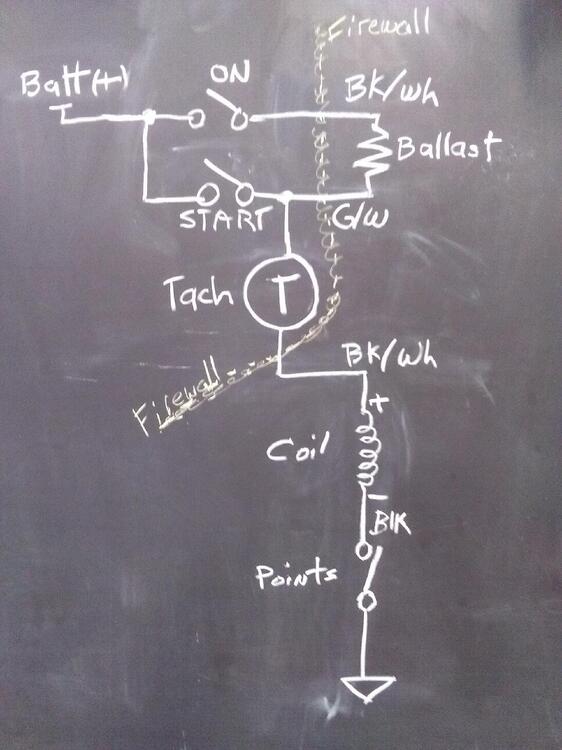 Firewall
Batt(+)
ON
BK/Wh
Ballast
START
G/W
Tach
T
BK/Wh
Firewall
+
Coil
-
BlK
Points